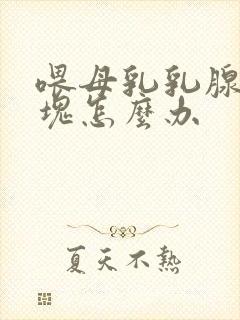 喂母乳乳腺
塊怎麼办
夏天不熱